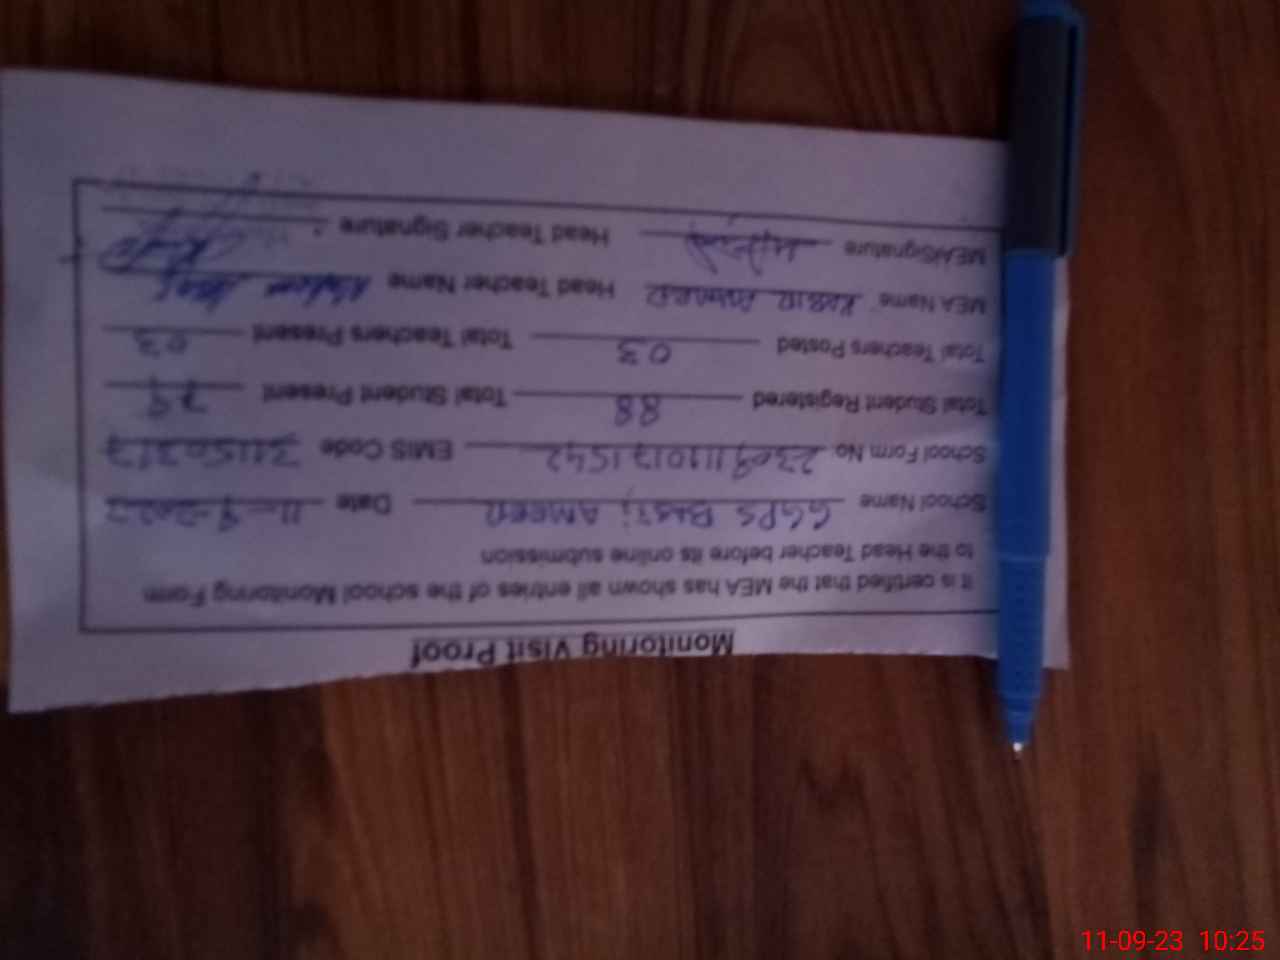 Monitoring Visit Proof
It is certified that the MEA has shown all entries of the school Monitoring Form
to the Head Teacher before its online submission
School Name GGPS Basti AMEER Date 11-9-2023
School Form No. 23091110171542 EMIS Code 31150317
Total Student Registered 88 Total Student Present 79
Total Teachers Posted 03 Total Teachers Present 03
MEA Name KABIR AHMED Head Teacher Name
MEA/Signature Head Teacher Signature
11-09-23 10:25